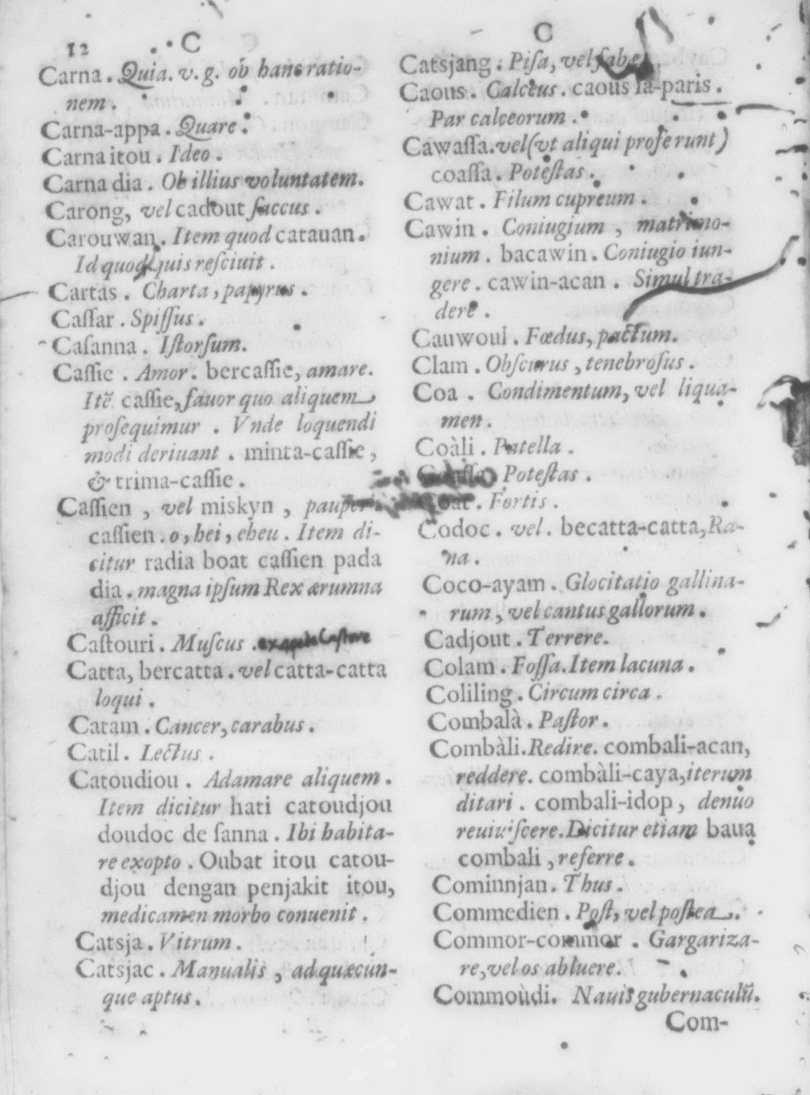 12 C
Carna. Quia. v. g. ob hanc ratio-
nem.
Carna-appa. Quare.
Carna itou. Ideo.
Carna dia. Ob illius voluntatem.
Carong, vel cadout saccus.
Carouwan. Item quod carauan.
Id quod quis resciuit.
Cartas. Charta, papyrus.
Caſſar. Spiſſus.
Caſanna. Iſtorſum.
Caſſie. Amor. bercaſſie, amare.
Itē caſſie, fauor quo aliquem
proſequimur. Vnde loquendi
modi deriuant. minta-caſſie,
& trima-caſſie.
Caſſien, vel miskyn, pauper
caſſien. o, hei, eheu. Item di-
citur radia boat caſſien pada
dia. magna ipſum Rex ærumna
afficit.
Caſtouri. Muſcus.
Catta, bercatta. vel catta-catta
loqui.
Catam. Cancer, carabus.
Catil. Lectus.
Catoudiou. Adamare aliquem.
Item dicitur hati catoudjou
doudoc de ſanna. Ibi habita-
re exopto. Oubat itou catou-
djou dengan penjakit itou,
medicamen morbo conuenit.
Catsja. Vitrum.
Catsjac. Manualis, ad quæcun-
que aptus.
C
Catsjang. Piſa, vel fabe
Caous. Calceus. caous ſa-paris.
Par calceorum.
Cawaſſa. vel (vt aliqui proferunt)
coaſſa. Poteſtas.
Cawat. Filum cupreum.
Cawin. Coniugium, matrimo-
nium. bacawin. Coniugio iun-
gere. cawin-acan. Simul tra-
dere.
Cauwoul. Fœdus, pactum.
Clam. Obſcurus, tenebroſus.
Coa. Condimentum, vel liqua-
men.
Coàli. Patella.
Poteſtas.
Fortis.
Codoc. vel. becatta-catta, Ra-
na.
Coco-ayam. Glocitatio gallina-
rum, vel cantus gallorum.
Cadjout. Terrere.
Colam. Foſſa. Item lacuna.
Coliling. Circum circa.
Combalà. Paſtor.
Combàli. Redire. combali-acan,
reddere. combàli-caya, iterum
ditari. combali-idop, denuo
reuiuiſcere. Dicitur etiam baua
combali, referre.
Cominnjan. Thus.
Commedien. Poſt, vel poſtea.
Commor-commor. Gargariza-
re, vel os abluere.
Commoùdi. Nauis gubernaculū.
Com-